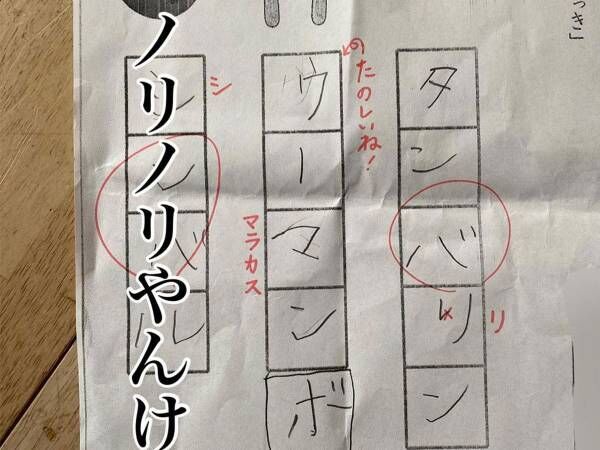 っき」
タンバリン
リ
のたのしいね!
ウーマンボ
マラカス
シ
シンバル
ノリノリやんけ